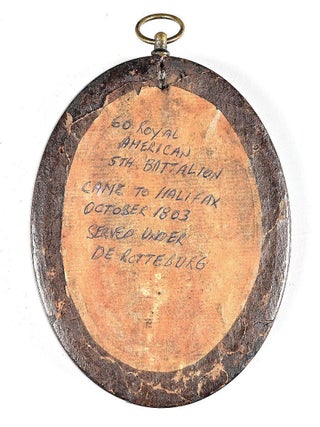 60 ROYAL
AMERICAN
5TH. BATTALION
CAME TO HALIFAX
OCTOBER 1803
SERVED UNDER
DE ROTTEBURG